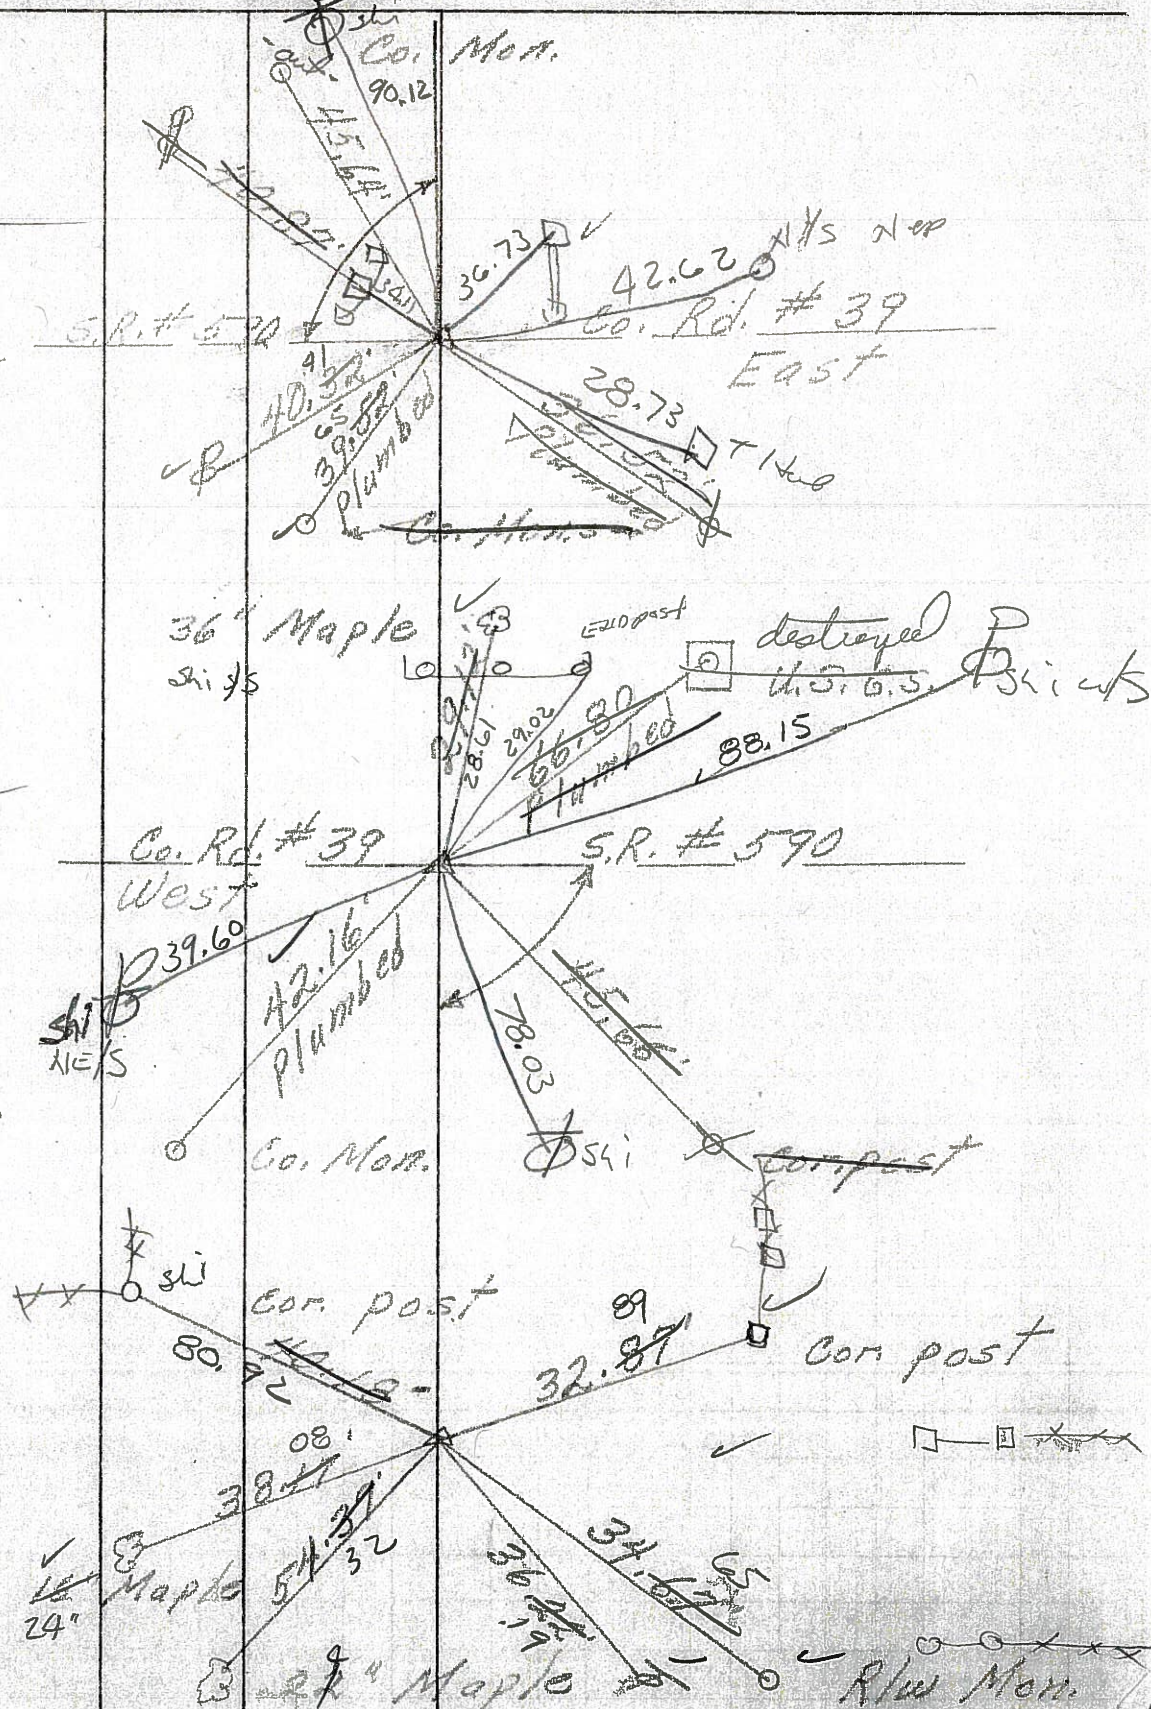 shi
Co. Mon.
aux.
90.12
45.64'
36.73
42.62
N/S Nep
34.11
S.R. # 590
Co. Rd. # 39
East
41
40.32'
65
39.82'
plumbed
28.73
plumbed
T Hub
Co. Mon.s
36" Maple
shi s/s
End post
destroyed
U.S.G.S.
shi w/s
29.17'
28.61
29.02
66.80
plumbed
88.15
Co. Rd. # 39
West
S.R. # 590
39.60
42.16'
plumbed
shi
NE/S
78.03
45.66'
Co. Mon.
shi
Cor. post
shi
Cor. post
80.92
89
32.87'
Cor. post
08'
38.17
54.39'
32
36.22'
79
34.67
65
Maple
24"
Maple
R/W Mon.